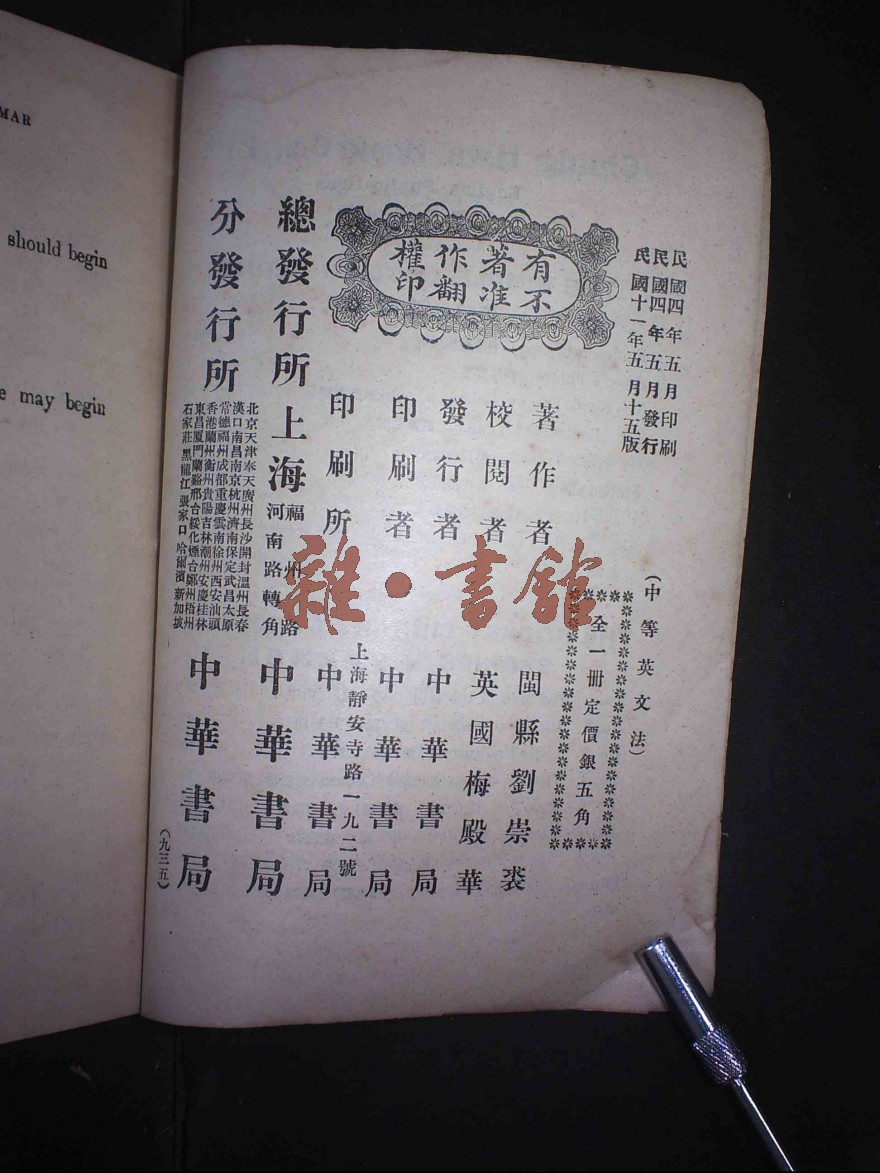 MAR
should begin
e may begin
民國四年五月印刷
民國四年五月發行
民國十一年五月十五版
有著作權
不准翻印
(中等英文法)
全一冊定價銀五角
著作者 閩縣劉崇裘
校閱者 英國梅殿華
發行者 中華書局
印刷者 中華書局
上海靜安寺路一九二號
印刷所 中華書局
總發行所 上海 福州路
河南路轉角 中華書局
分發行所
北京天津奉天廣州長沙開封溫州長春
漢口南昌南京杭州濟南保定武昌太原
常德福州成都重慶雲南徐州西安汕頭
香港蘭州衡州貴陽吉林潮州安慶桂林
東昌厦門蘭谿邢台綏化煙台鄭州梧州
石家莊黑龍江張家口哈爾濱新加坡
中華書局
(九三五)
雜·書館